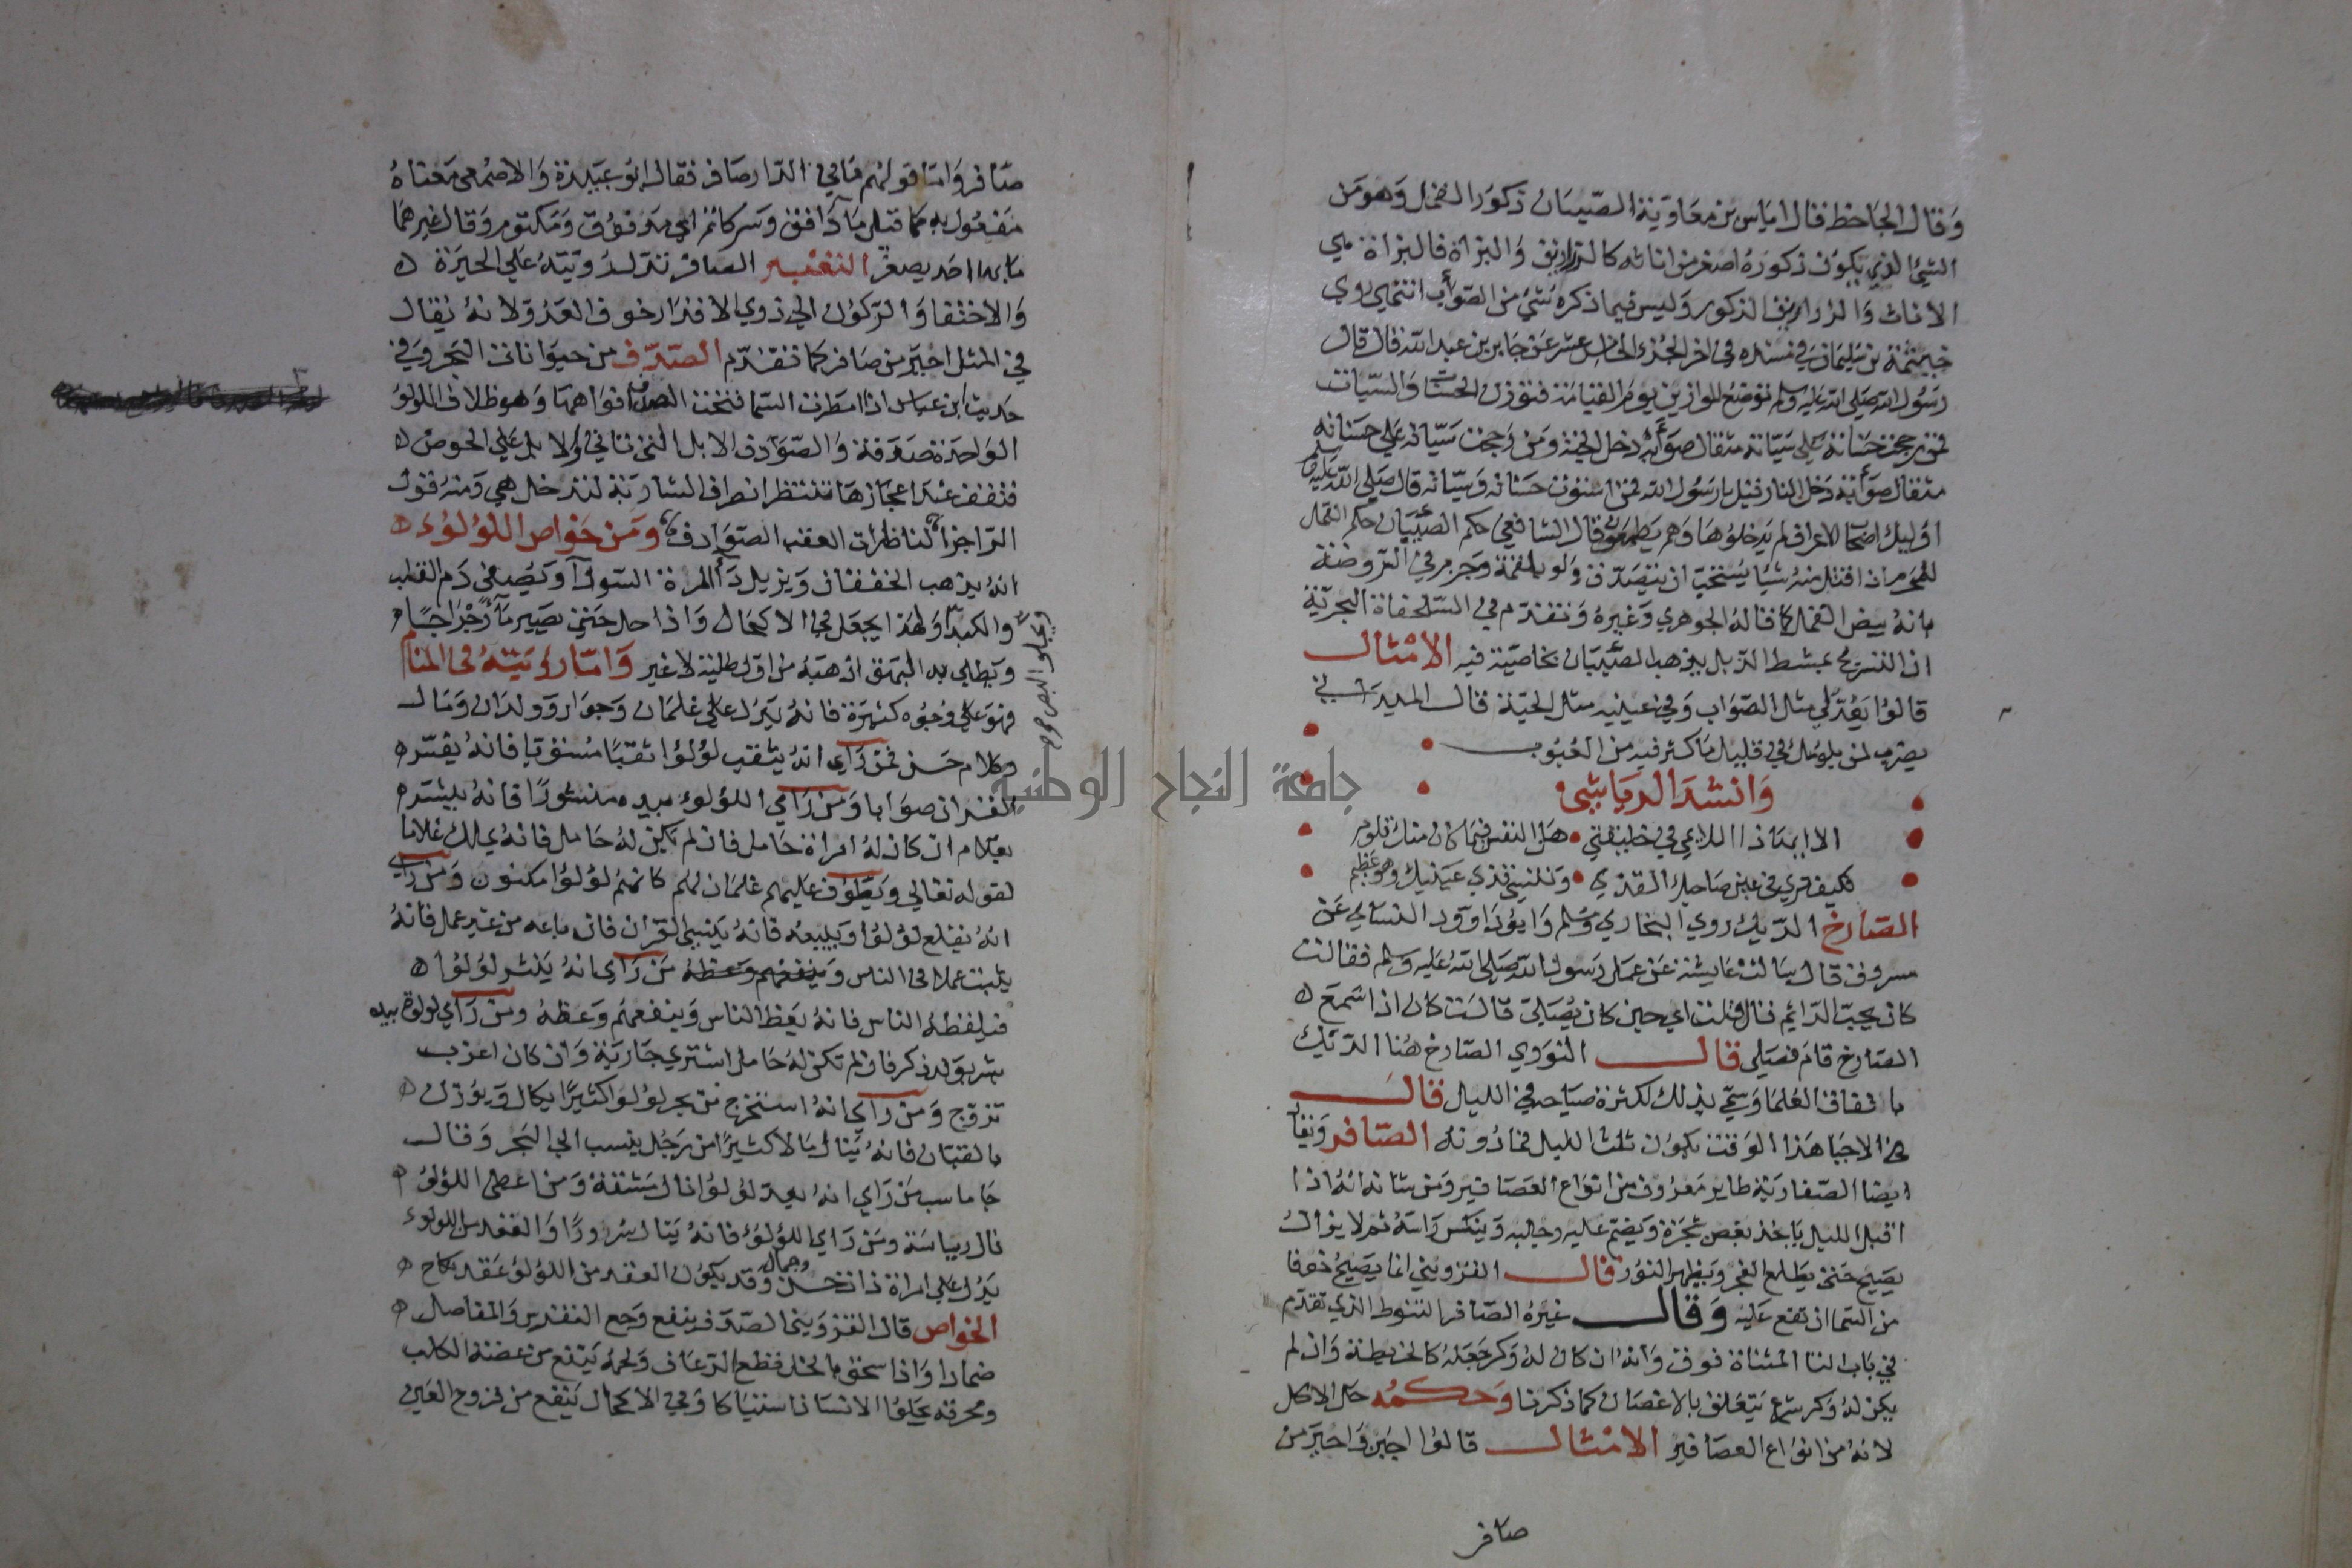 وقال الجاحظ قال اياس بن معاوية الصيبان ذكور القمل وهو من
الشي الذي يكون ذكوره اصغر من اناثه كالزراريق والبزاة فالبزاة هي
الاناث والزراريق الذكور وليس فيما ذكره شي من الصواب انتهى روي
خيثمة بن سليمان في مسنده في اخر الجزء الخامس عشر عن جابر بن عبد الله قال قال
رسول الله صلى الله عليه وسلم توضع الموازين يوم القيامة فتوزن الحسنات والسيات
فمن رجحت حسناته على سياته مثقال صوابة دخل الجنة ومن رجحت سياته على حسناته
مثقال صوابة دخل النار قيل يا رسول الله فمن استوت حسناته وسياته قال صلى الله عليه وسلم
اوليك اصحاب الاعراف لم يدخلوها وهم يطمعون قال الشافعي حكم الصيبان حكم القمل
للمحرم اذا قتل منه شيا يستحب ان يتصدق ولو بلقمة وجزم في الروضة
بانه بيض القمل كما قاله الجوهري وغيره وتقدم في السلحفاة البحرية
ان التسرح بمشط الذبل يذهب الصيبان بخاصية فيه الامثال
قالوا يعد لي مثل الصواب وفي عينيه مثل الحية قال الميداني
يضرب لمن يلومك في قليل ما كثر فيه من العيوب
وانشد الرياشي
الا ايهاذا اللايمي في خليقتي هل النفس فيما كان منك تلوم
فكيف ترى في عين صاحبك القذى وتنسى قذى عينيك وهو عظيم
الصارخ الديك روي البخاري ومسلم وابو داوود النساي عن
مسروق قال سالت عايشة عن عمل رسول الله صلى الله عليه وسلم فقالت
كان يحب الدايم قال قلت اي حين كان يصلي قالت كان اذا سمع
الصارخ قام فصلى قال النووي الصارخ هنا الديك
باتفاق العلما وسمي بذلك لكثرة صياحه في الليل قال
في الاحيا هذا الوقت يكون ثلث الليل فما دونه الصافر ويقال
ايضا الصفارية طاير معروف من انواع العصافير ومن شانه انه اذا
اقبل الليل ياخذ بغصن شجرة ويضم عليه رجليه وينكس راسه ثم لا يزال
يصيح حتى يطلع الفجر ويظهر النور قال القزويني انما يصيح خوفا
من السما ان تقع عليه وقال غيره الصافر التنوط الذي تقدم
في باب التا المثناة فوق وانه ان كان له وكر جعله كالخريطة وان لم
يكن له وكر شرع يتعلق بالاغصان كما ذكرنا وحكمه حل الاكل
لانه من انواع العصافير الامثال قالوا اجبن واحير من
صافر
صافر واما قولهم ما في الدار صافر فقال ابو عبيدة والاصمعي معناه
مفعول به كما قيل ما دافق وسر كاتم اي مدفوق ومكتوم وقال غيرهما
ما بها احد يصفر التعبير الصافر تدل رويته على الحيرة
والاختفا والركون الى ذوي الاقدار خوف العدو لانه يقال
في المثل احير من صافر كما تقدم الصدف من حيوانات البحر وفي
حديث ابن عباس اذا مطرت السما فتحت الصدف افواهها وهو غلاف اللولو
الواحدة صدفة والصوادف الابل التي تاتي ولا بل على الحوض
فتقف عند اعجازها تنتظر انصراف الشاربة لتدخل هي ومنه قول
الراجز الناظرات العقب الصوادف ومن خواص اللولوء
انه يذهب الخفقان ويزيل دا المرة السودا ويصفي دم القلب
والكبد ولهذا يجعل في الاكحال واذا حل حتى يصير ما رجراجا
ويجلو البصر
وطلي به البهق اذهبه من اول طلية لا غير واما رويته في المنام
فهو على وجوه كثيرة فانه يدل على غلمان وجوار وولدان ومال
وكلام حسن فمن راي انه يثقب لولوا ثقبا مستويا فانه يفسر
القران صوابا ومن راي اللولوء بيده منثورا فانه يبشر
بغلام ان كان له امراة حامل فان لم يكن له حامل فانه يملك غلاما
لقوله تعالى ويطوف عليهم غلمان لهم كانهم لولو مكنون ومن راي
انه يقلع لولوا ويبيعه فانه ينسى القران فان باعه من غير عمل فانه
يثبت عملا في الناس وينفعهم وعظه من راي انه ينثر لولوا
فيلتقطه الناس فانه يعظ الناس وينفعهم وعظه ومن راي لولوة بيده
بشر بولد ذكر فان لم تكن له حامل اشترى جارية وان كان اعزب
تزوج ومن راي انه استخرج من بحر لولوا كثيرا يكال ويوزن
بالقبان فانه ينال مالا كثيرا من رجل ينسب الى البحر وقال
جاماسب من راي انه يعد لولوا نال مشقة ومن اعطى اللولو
نال رياسة ومن راي اللولو فانه ينال سرورا والعقد من اللولوء
يدل على امراة ذات حسن وجمال وقد يكون العقد من اللولو عقد نكاح
الخواص قال القزويني الصدف ينفع وجع النقرس والمفاصل
ضمادا واذا سحق بالخل قطع الرعاف ولحمه ينفع من عضة الكلب
ومحرقه يجلوا الاسنان استياكا وفي الاكحال ينفع من قروح العين
جامعة النجاح الوطنية